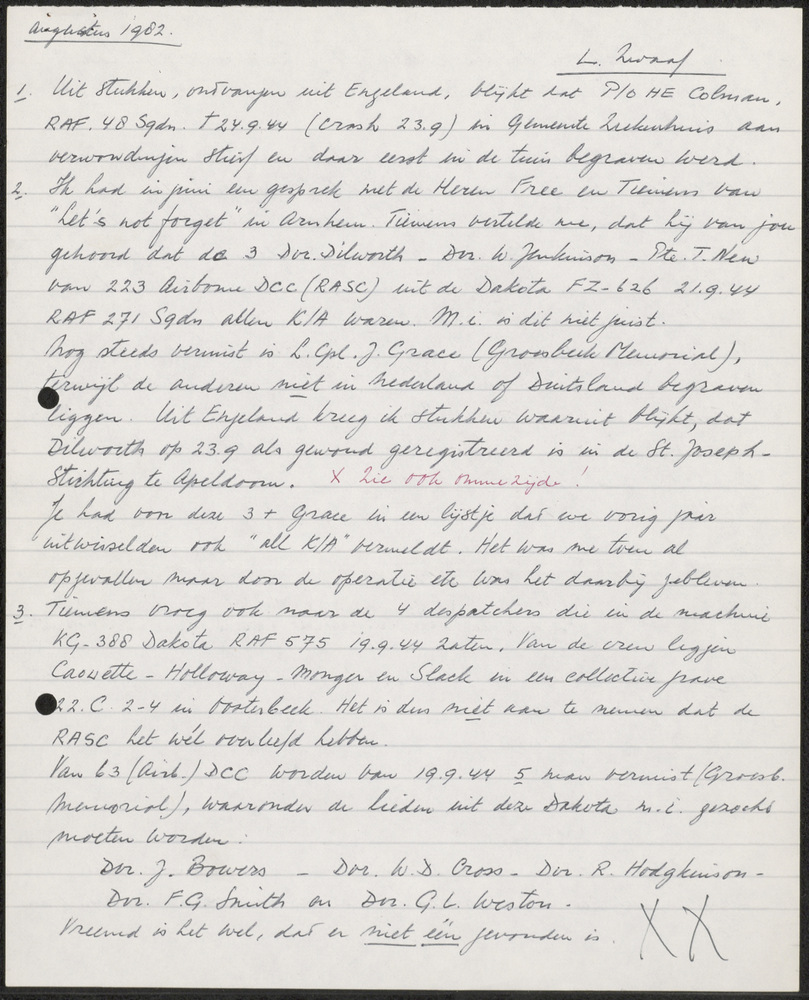 augustus 1982.
L. Zwaaf
1. Uit stukken, ontvangen uit Engeland, blijkt dat P/O HE Colman,
RAF. 48 Sqdn. † 24.9.44 (crash 23.9) in Gemeente Ziekenhuis aan
verwondingen stierf en daar eerst in de tuin begraven werd.
2. Ik had in juni een gesprek met de Heren Free en Tiemens van
"Let's not forget" in Arnhem. Tiemens vertelde me, dat hij van jou
gehoord dat de 3 Dvr. Dilworth - Dvr. W. Jenkinson - Pte. T. New
van 223 Airborne DCC (RASC) uit de Dakota FZ-626 21.9.44
RAF 271 Sqdn allen K/A waren. M.i. is dit niet juist.
Nog steeds vermist is L. Cpl. J. Grace (Groesbeek Memorial),
terwijl de anderen niet in Nederland of Duitsland begraven
liggen. Uit Engeland kreeg ik stukken waaruit blijkt, dat
Dilworth op 23.9 als gewond geregistreerd is in de St. Joseph-
Stichting te Apeldoorn. X Zie ook ommezijde!
Je had voor deze 3 + Grace in een lijstje dat we vorig jaar
uitwisselden ook "all K/A" vermeldt. Het was me toen al
opgevallen maar door de operatie etc was het daarbij gebleven.
3. Tiemens vroeg ook naar de 4 despatchers die in de machine
KG-388 Dakota RAF 575 19.9.44 zaten. Van de crew liggen
Caowette - Holloway - Monger en Slack in een collective grave
22. C. 2-4 in Oosterbeek. Het is dus niet aan te nemen dat de
RASC het wél overleefd hebben.
Van 63 (Airb.) DCC worden van 19.9.44 5 man vermist (Groesb.
Memorial), waaronder de lieden uit deze Dakota m.i. gezocht
moeten worden:
Dvr. J. Bowers - Dvr. W.D. Cross - Dvr. R. Hodgkinson -
Dvr. F.G. Smith en Dvr. G.L. Weston -
Vreemd is het wel, dat er niet één gevonden is. XX